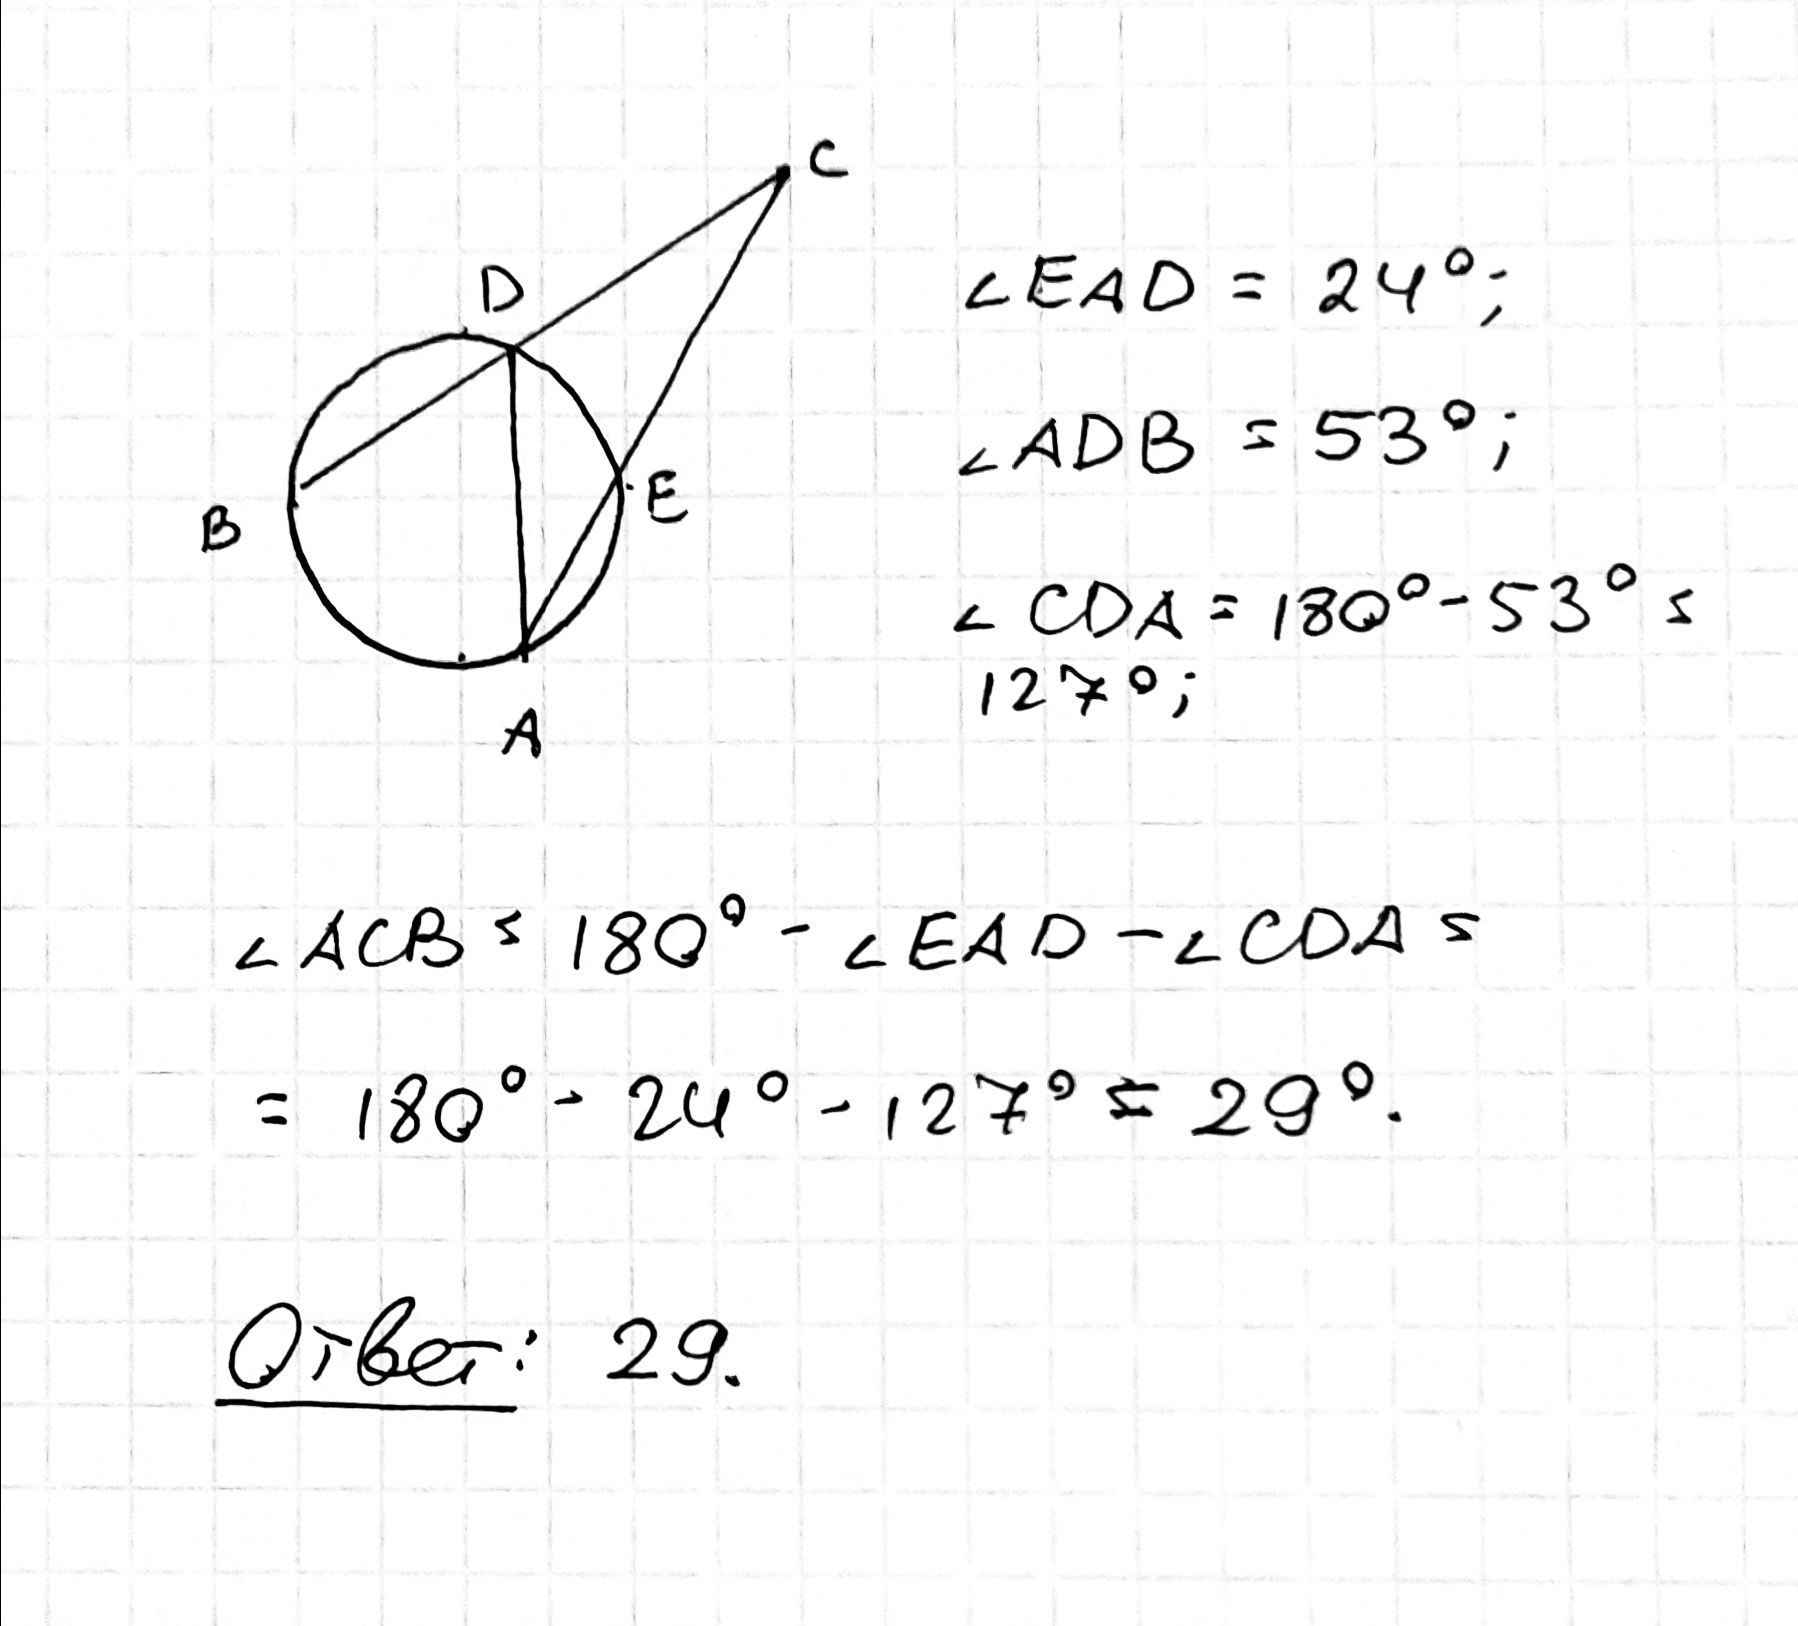 C
D
∠EAD = 24°;
∠ADB = 53°;
E
B
∠CDA = 180° - 53° =
127°;
A
∠ACB = 180° - ∠EAD - ∠CDA =
= 180° - 24° - 127° = 29°.
Ответ: 29.